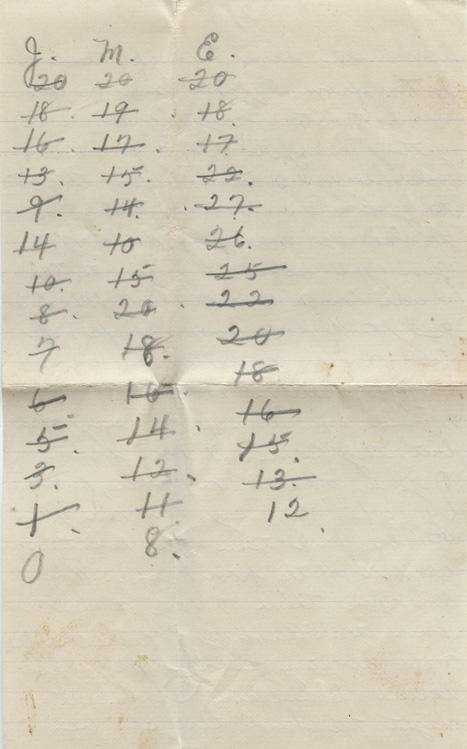 J. M. E.
20 20 20
18 19 18
16 17 17
13 15 22
9 14 27
14 10 26
10 15 25
8 20 22
7 18 20
6 16 18
5 14 16
3 12 15
1 11 13
0 8 12